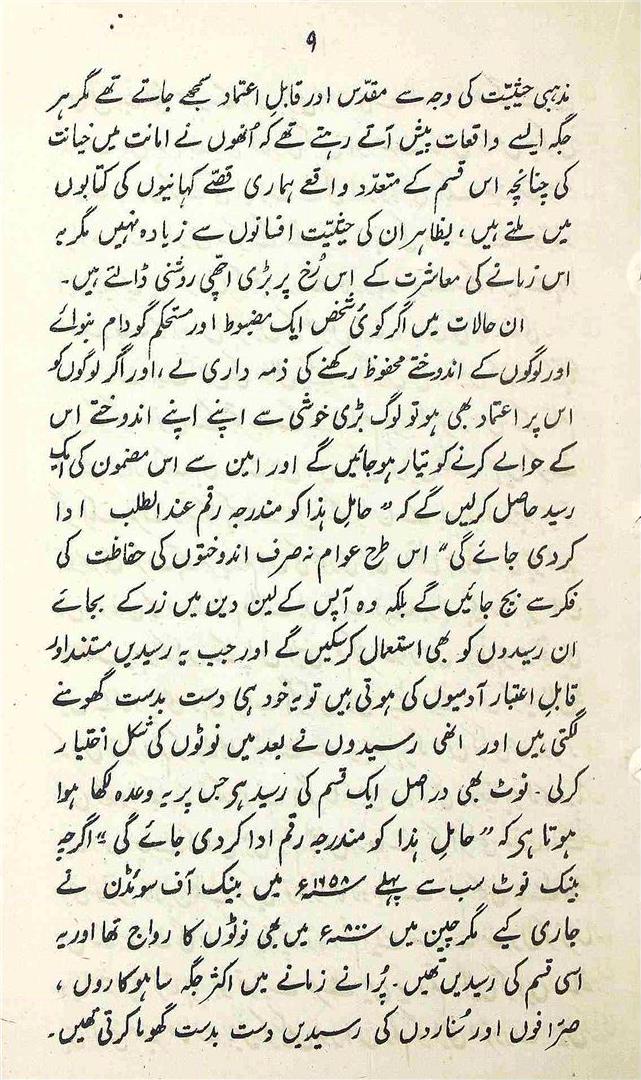 ۹
مذہبی حیثیّت کی وجہ سے مقدّس اور قابلِ اعتماد سمجھے جاتے تھے مگر ہر
جگہ ایسے واقعات پیش آتے رہتے تھے کہ اُنھوں نے امانت میں خیانت
کی چنانچہ اس قسم کے متعدّد واقعے ہماری قصّے کہانیوں کی کتابوں
میں ملتے ہیں، بظاہر ان کی حیثیّت افسانوں سے زیادہ نہیں مگر یہ
اس زمانے کی معاشرت کے اس رُخ پر بڑی اچھّی روشنی ڈالتے ہیں۔
ان حالات میں اگر کوئی شخص ایک مضبوط اور مستحکم گودام بنوائے
اور لوگوں کے اندوختے محفوظ رکھنے کی ذمہ داری لے، اور اگر لوگوں کو
اس پر اعتماد بھی ہو تو لوگ بڑی خوشی سے اپنے اپنے اندوختے اس
کے حوالے کرنے کو تیار ہو جائیں گے اور امین سے اس مضمون کی ایک
رسید حاصل کرلیں گے کہ " حاملِ ہٰذا کو مندرجہ رقم عند الطلب ادا
کردی جائے گی" اس طرح عوام نہ صرف اندوختوں کی حفاظت کی
فکر سے بچ جائیں گے بلکہ وہ آپس کے لین دین میں زر کے بجائے
ان رسیدوں کو بھی استعمال کرسکیں گے اور جب یہ رسیدیں مستند اور
قابلِ اعتبار آدمیوں کی ہوتی ہیں تو یہ خود ہی دست بدست گھومنے
لگتی ہیں اور انھی رسیدوں نے بعد میں نوٹوں کی شکل اختیار
کرلی۔ نوٹ بھی دراصل ایک قسم کی رسید ہی جس پر یہ وعدہ لکھا ہوا
ہوتا ہی کہ " حاملِ ہٰذا کو مندرجہ رقم ادا کردی جائے گی" اگرچہ
بینک نوٹ سب سے پہلے ۱۶۵۸ء میں بینک آف سوئڈن نے
جاری کیے مگر چین میں ۸۰۰ء میں بھی نوٹوں کا رواج تھا اور یہ
اسی قسم کی رسیدیں تھیں۔ پُرانے زمانے میں اکثر جگہ ساہوکاروں،
صرّافوں اور سُناروں کی رسیدیں دست بدست گھوما کرتی تھیں۔